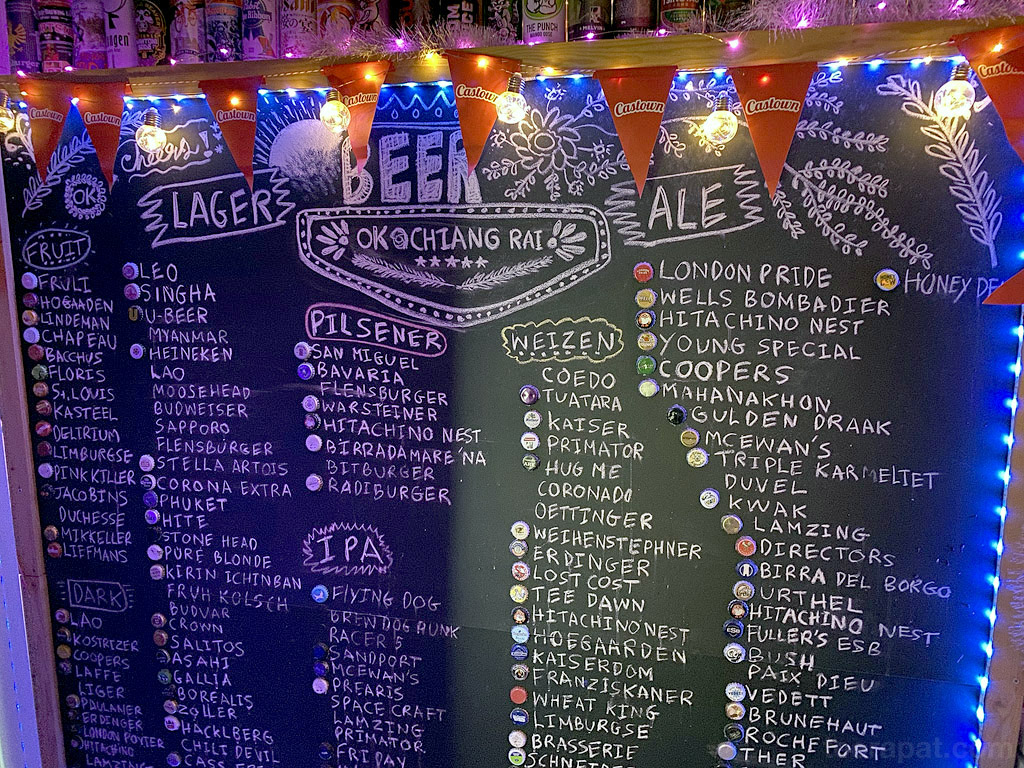 THE PUNCH
Castown
Castown
Castown
Castown
Castown
Castown
Castown
Castown
Cheers!
OK
BEER
OK CHIANG RAI
FRUIT
FRULI
HOGAADEN
LINDEMAN
CHAPEAU
BACCHUS
FLORIS
St. LOUIS
KASTEEL
DELIRIUM
LIMBURGSE
PINK KILLER
JACOBINS
DUCHESSE
MIKKELLER
LIEFMANS
DARK
LAO
KOSTRITZER
COOPERS
LAFFE
LIGER
PDULANER
ERDINGER
LONDON POYTER
HITACHINO
LAMZING
LAGER
LEO
SINGHA
U-BEER
MYANMAR
HEINEKEN
LAO
MOOSEHEAD
BUDWEISER
SAPPORO
FLENSBURGER
STELLA ARTOIS
CORONA EXTRA
PHUKET
HITE
STONE HEAD
PURE BLONDE
KIRIN ICHINBAN
FRUH KOLSCH
BUDVAR
CROWN
SALITOS
ASAHI
GALLIA
BOREALIS
ZOLLER
HACKLBERG
CHILI DEVIL
PILSENER
SAN MIGUEL
BAVARIA
FLENSBURGER
WARSTEINER
HITACHINO NEST
BIRRADAMARE'NA
BITBURGER
RADIBURGER
IPA
FLYING DOG
BREWDOG PUNK
RACER 5
SANDPORT
MCEWAN'S
PREARIS
SPACE CRAFT
LAMZING
PRIMATOR
FRIDAY
WEIZEN
COEDO
TUATARA
KAISER
PRIMATOR
HUG ME
CORONADO
OETTINGER
WEIHENSTEPHNER
ERDINGER
LOST COST
TEE DAWN
HITACHINO NEST
HOEGAARDEN
KAISERDOM
FRANZISKANER
WHEAT KING
LIMBURGSE
BRASSERIE
SCHNEIDER
ALE
LONDON PRIDE
WELLS BOMBADIER
HITACHINO NEST
YOUNG SPECIAL
COOPERS
MAHANAKHON
GULDEN DRAAK
MCEWAN'S
TRIPLE KARMELIET
DUVEL
KWAK
LAMZING
DIRECTORS
BIRRA DEL BORGO
URTHEL
HITACHINO NEST
FULLER'S ESB
BUSH
PAIX DIEU
VEDETT
BRUNEHAUT
ROCHEFORT
THER
HONEY DE
apat.com